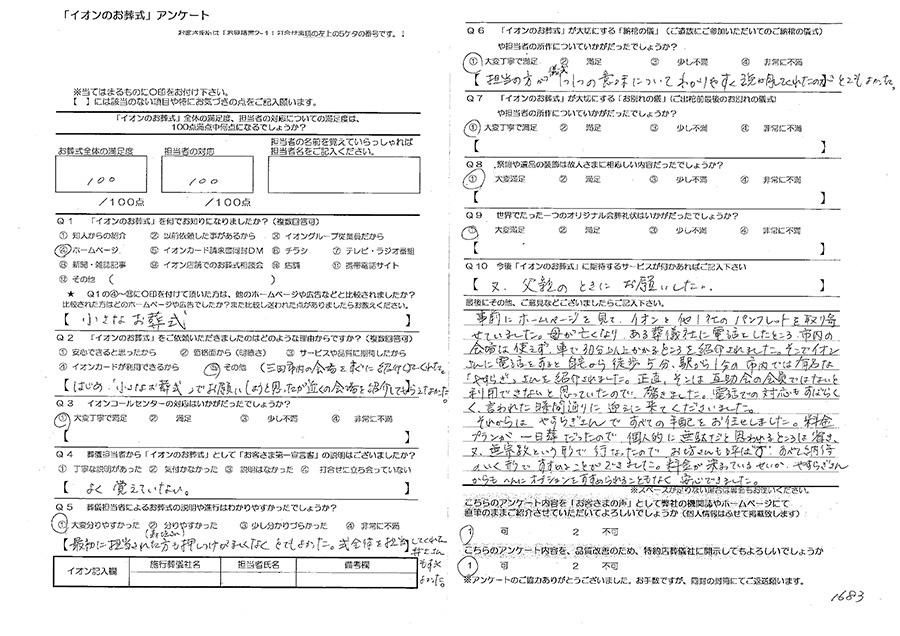 「イオンのお葬式」アンケート
※当てはまるものに○印をお付け下さい。
【　】には該当のない項目や特にお気づきの点をご記入願います。
「イオンのお葬式」全体の満足度、担当者の対応についての満足度は、
100点満点中何点になるでしょうか？
お葬式全体の満足度
100
/100点
担当者の対応
100
/100点
担当者の名前を覚えていらっしゃれば
担当者名をご記入ください。
Q1　「イオンのお葬式」を何でお知りになりましたか？（複数回答可）
① 知人からの紹介　② 以前依頼した事があるから　③ イオングループ従業員だから
④ ホームページ　⑤ イオンカード請求書同封DM　⑥ チラシ　⑦ テレビ・ラジオ番組
⑧ 新聞・雑誌記事　⑨ イオン店頭でのお葬式相談会　⑩ 店舗　⑪ 携帯電話サイト
⑫ その他（　）
★ Q1の④〜⑪に○印を付けて頂いた方は、他のホームページや広告などと比較されましたか？
比較された方はどのホームページや広告でしたか？また比較し迷われた点がありましたらお教えください。
【 小さなお葬式 】
Q2　「イオンのお葬式」をご依頼いただきましたのはどのような理由からですか？（複数回答可）
① 安心できると思ったから　② 価格面から（明瞭さ）　③ サービスや品質に期待したから
④ イオンカードが利用できるから　⑤ その他（三田市内の会場をすぐに紹介してくれた。）
【はじめ「小さなお葬式」でお願いしようと思ったが近くの会場を紹介してもらえなかった。
Q3　イオンコールセンターの対応はいかがだったでしょうか？
① 大変丁寧で満足　② 満足　③ 少し不満　④ 非常に不満
【　】
Q4　葬儀担当者から「イオンのお葬式」として「お客さま第一宣言書」の説明はございましたか？
① 丁寧な説明があった　② 気付かなかった　③ 説明はなかった　④ 打合せに立ち会っていない
【 よく覚えていない。 】
Q5　葬儀担当者によるお葬式の説明や進行はわかりやすかったでしょうか？
① 大変分りやすかった　② 分りやすかった　③ 少し分りづらかった　④ 非常に不満
【最初に担当された方も押しつけがましくなくとてもよかった。式全体を担当
してくれた
よかった。
イオン記入欄　施行葬儀社名　担当者氏名　備考欄
Q6　「イオンのお葬式」が大切にする「納棺の儀」（ご遺族にご参加いただいてのご納棺の儀式）
や担当者の所作についていかがだったでしょうか？
① 大変丁寧で満足　② 満足　③ 少し不満　④ 非常に不満
【 担当の方が儀式1つ1つの意味についてわかりやすく説明してくれたのがとてもよかった。
Q7　「イオンのお葬式」が大切にする「お別れの儀」（ご出棺前最後のお別れの儀式）
や担当者の所作についていかがだったでしょうか？
① 大変丁寧で満足　② 満足　③ 少し不満　④ 非常に不満
【　】
Q8　祭壇や遺品の装飾は故人さまに相応しい内容だったでしょうか？
① 大変満足　② 満足　③ 少し不満　④ 非常に不満
【　】
Q9　世界でたった一つのオリジナル会葬礼状はいかがだったでしょうか？
① 大変満足　② 満足　③ 少し不満　④ 非常に不満
【　】
Q10　今後「イオンのお葬式」に期待するサービスが何かあればご記入下さい
【 又、父親のときにお願いしたい。 】
最後にその他、ご意見などございましたらご記入下さい。
事前にホームページを見て、イオンと他1社のパンフレットを取り寄
せていました。母が亡くなり、ある葬儀社に電話としたところ、市内の
会場は使えず、車で30分以上かかるところを紹介されました。そこでイオン
さんに電話をすると自宅から徒歩5分、駅から1分の市内では有名な
「やすらぎ」さんを紹介されました。正直、そこは互助会の会員ではないと
利用できないと思っていたので、驚きました。電話での対応もすばらし
く、言われた時間通りに迎えに来てくださいました。
それからは、やすらぎさんですべての手配をお任せしました。料金
プランが一日葬だったので、個人的に無駄だと思われるところは省き、
又、無宗教という形で行なったので、お坊さんも呼ばず、あべこべ
のいく形ですすめることができました。料金が決まっているせいか、やすらぎさん
からもへんにオプションをすすめられることもなく安心できました。
※スペースが足りない場合は裏面もお使いください。
こちらのアンケート内容を「お客さまの声」として弊社の機関誌やホームページにて
直筆のままご紹介させていただいてよろしいでしょうか（個人情報はふせて掲載致します）
1　可　　2　不可
こちらのアンケート内容を、品質改善のため、特約店葬儀社に開示してもよろしいでしょうか
1　可　　2　不可
※アンケートのご協力ありがとうございました。お手数ですが、同封の封筒にてご返送願います。
1683